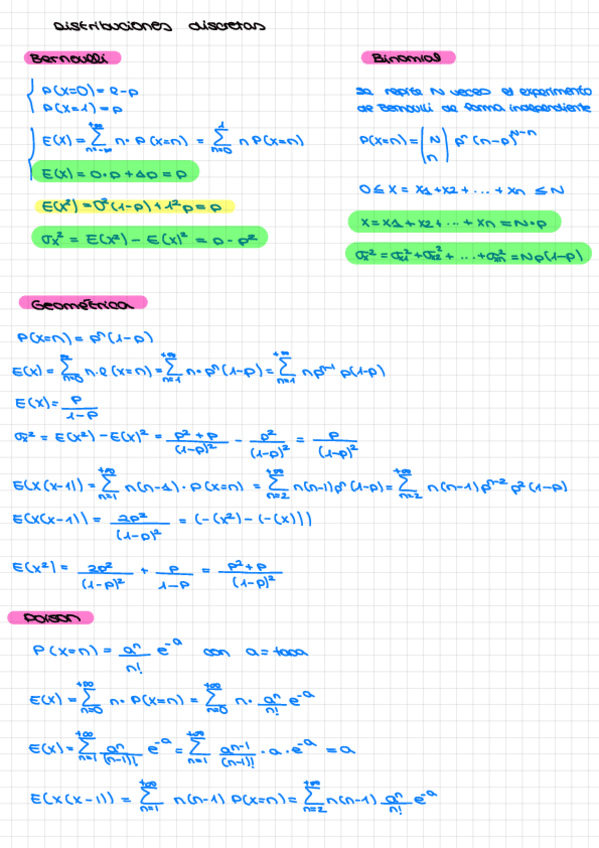 Distribuciones discretas
Bernoulli
P(x=0) = 1-p
P(x=1) = p
E(x) = ∑_{n=-∞}^{+∞} n · P(x=n) = ∑_{n=0}^{1} n P(x=n)
E(x) = 0·p + 1p = p
E(x²) = 0²(1-p) + 1²p = p
σx² = E(x²) - E(x)² = p - p²
Binomial
se repite N veces el experimento
de Bernoulli de forma independiente
P(x=n) = (N n) pⁿ (n-p)^{N-n}
0 ≤ x = x1+x2+ ... +xn ≤ N
x = x1+x2+ ... +xn = N·p
σx² = σx1² + σx2² + ... + σxn² = Np(1-p)
Geométrica
P(x=n) = pⁿ(1-p)
E(x) = ∑_{n=0}^{∞} n·P(x=n) = ∑_{n=1}^{+∞} n·pⁿ(1-p) = ∑_{n=1}^{+∞} np^{n-1} p(1-p)
E(x) = p/(1-p)
σx² = E(x²) - E(x)² = (p²+p)/(1-p)² - p²/(1-p)² = p/(1-p)²
E(x(x-1)) = ∑_{n=1}^{+∞} n(n-1)·P(x=n) = ∑_{n=2}^{+∞} n(n-1)pⁿ(1-p) = ∑_{n=2}^{+∞} n(n-1)p^{n-2} p²(1-p)
E(x(x-1)) = 2p²/(1-p)² = (-(x²)-(-(x)))
E(x²) = 2p²/(1-p)² + p/(1-p) = (p²+p)/(1-p)²
Poison
P(x=n) = aⁿ/n! e^{-a} con a = tasa
E(x) = ∑_{n=0}^{+∞} n·P(x=n) = ∑_{n=0}^{+∞} n·aⁿ/n! e^{-a}
E(x) = ∑_{n=1}^{+∞} aⁿ/(n-1)! e^{-a} = ∑_{n=1}^{+∞} a^{n-1}/(n-1)! ·a·e^{-a} = a
E(x(x-1)) = ∑_{n=1}^{+∞} n(n-1) P(x=n) = ∑_{n=2}^{+∞} n(n-1) aⁿ/n! e^{-a}